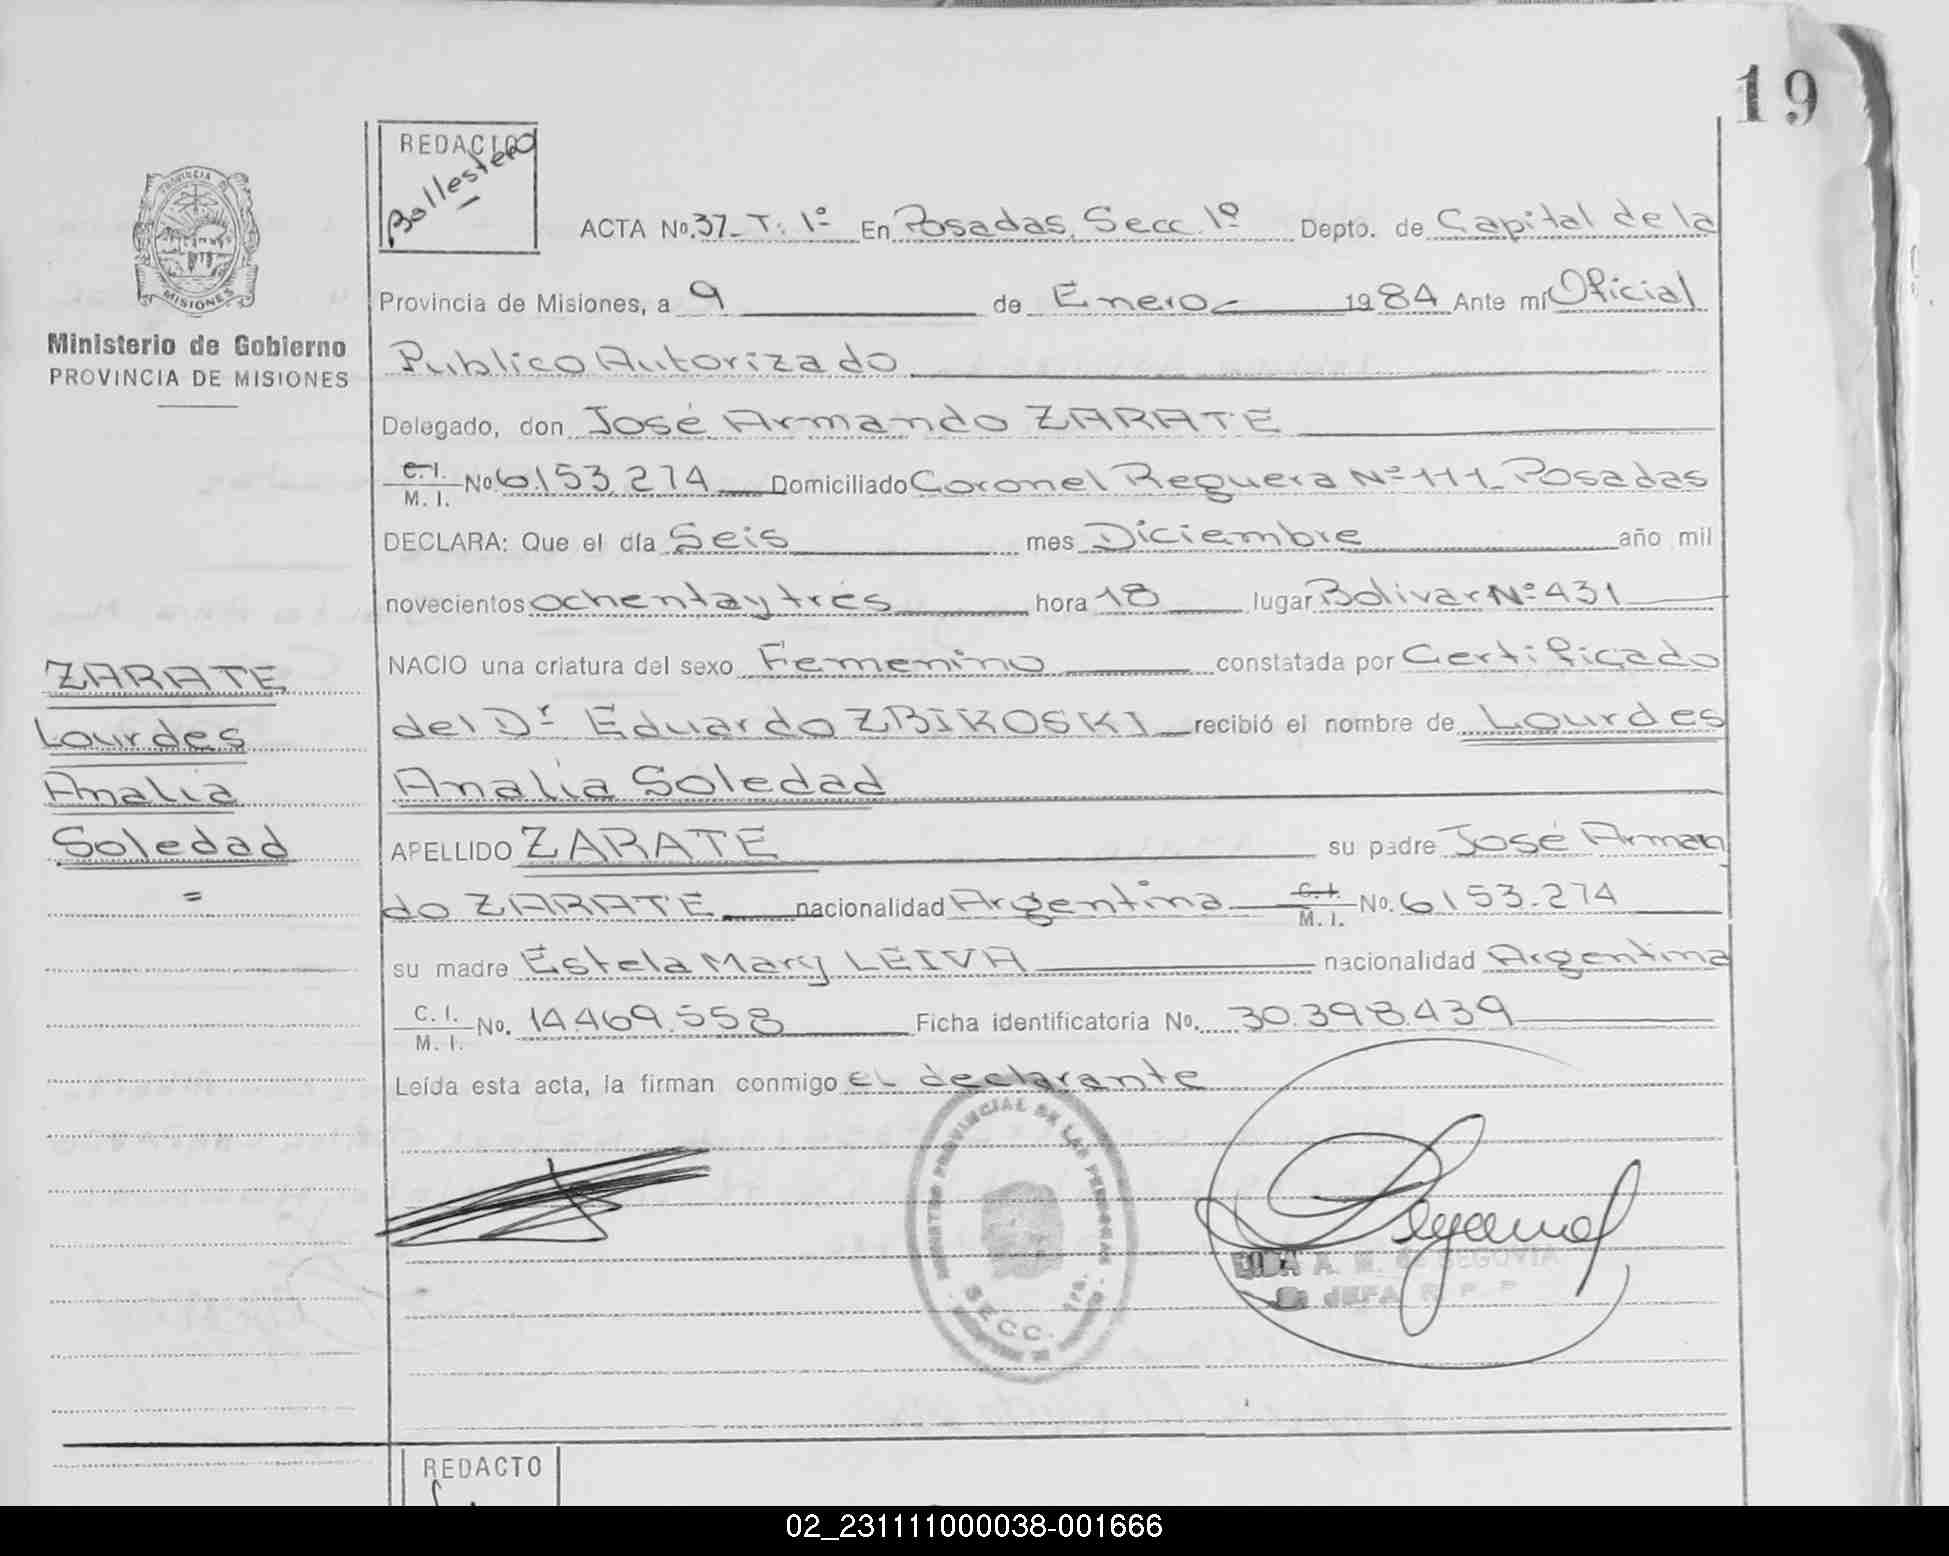 19
REDACTO
Ballestero
PROVINCIA DE
MISIONES
Ministerio de Gobierno
PROVINCIA DE MISIONES
ACTA No. 37_ T. 1º En Posadas, Secc. 1º Depto. de Capital de la
Provincia de Misiones, a 9 de Enero 1984 Ante mí Oficial
Publico Autorizado
Delegado, don José Armando ZARATE
C.I. / M. I. No 6.153.274 Domiciliado Coronel Reguera Nº 111_ Posadas
DECLARA: Que el día Seis mes Diciembre año mil
novecientos ochenta y trés hora 18 lugar Bolivar Nº 431
NACIO una criatura del sexo Femenino constatada por Certificado
del Dr Eduardo ZBIKOSKI recibió el nombre de Lourdes
Analia Soledad
APELLIDO ZARATE su padre José Arman
do ZARATE nacionalidad Argentina C.I. / M. I. No. 6153.274
su madre Estela Mary LEIVA nacionalidad Argentina
C. I. / M. I. No. 14.469.558 Ficha identificatoria No. 30.398.439
Leída esta acta, la firman conmigo el declarante
ZARATE
Lourdes
Analia
Soledad
=
REGISTRO PROVINCIAL DE LAS PERSONAS
SECC. 1ra.
A. M. de SEGOVIA
JEFA R. P. P.
REDACTO
02_231111000038-001666